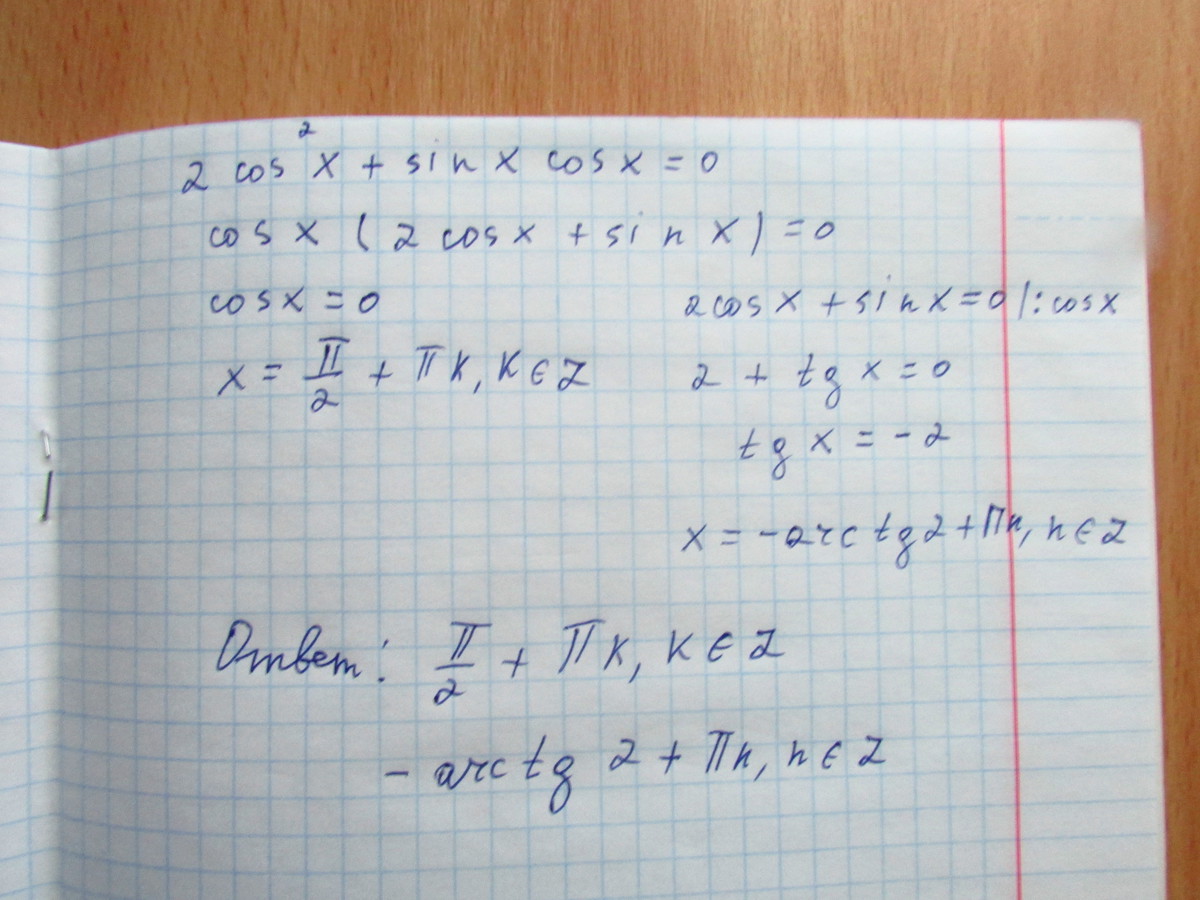 2 cos² x + sin x cos x = 0
cos x ( 2 cos x + sin x ) = 0
cos x = 0
2 cos x + sin x = 0 | : cos x
x = π/2 + πk, k ∈ Z
2 + tg x = 0
tg x = -2
x = -arctg 2 + πn, n ∈ Z
Ответ: π/2 + πk, k ∈ Z
- arctg 2 + πn, n ∈ Z